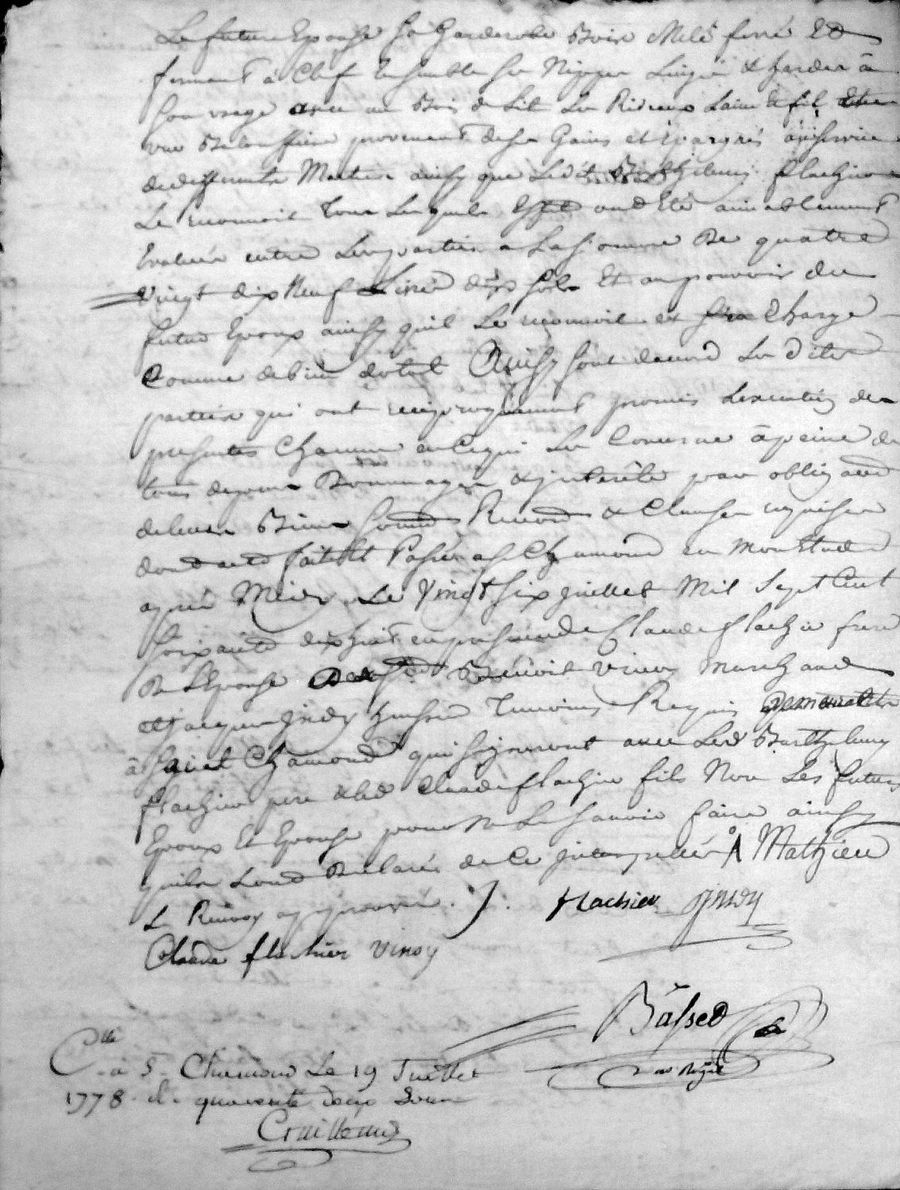 La future Epouse sa Garderobe Bois Mele ferré Et
fermant a Clef Ensemble Ses Nippes Linges & hardes a
Son usage avec un Bois de Lit Les Rideaux Laine & fil
une provenant de Ses Gains et Epargnes au Service
de differents Maitres ainsy que Led.t Barthelemy flachier
Le reconnoit Tous Lesquels Effets ond Eté amiablement
Evalués entre Les parties a La Somme De quatre
Vingt dix Neuf Livres dix Sols Et au pouvoir du
futur Epoux ainsy quil Le reconnoit et Sen Charge
Comme de bien dotal Ainsy Sont d'acord Les dites
parties qui ont reciproquement promis Lexecution des
presentes Chacune en Ce qui Les Concerne a peine de
tous depens Dommages & jnterêts par obligaõn
de leurs Biens Soum Renonõ & Clauses requises
dond acte fait Et Passé a S.t Chamond en mon Etude
après Midy Le Vingt Six juillet Mil Sept Cent
Soixante dix huit en presence de Claude flachier frere
De L'Epouse Benoit Vinoy Marchand
et Jacques jnsdy Temoins Requis
a Saint Chamond qui Signeront avec Led. Barthelemy
flachier pere & led. Claude flachier fils Non Les futurs
Epoux Et Epouse pour Ne Le Savoir faire ainsy
quils Lond Declarés de Ce jnterpellés Mathieu
Le Renvoy approuvé.
flachier
Claude flachier Vinoy
Basset
no.re Royal
C.lle à S. Chamond Le 19 Juillet
1778 R. quarente deux Sous